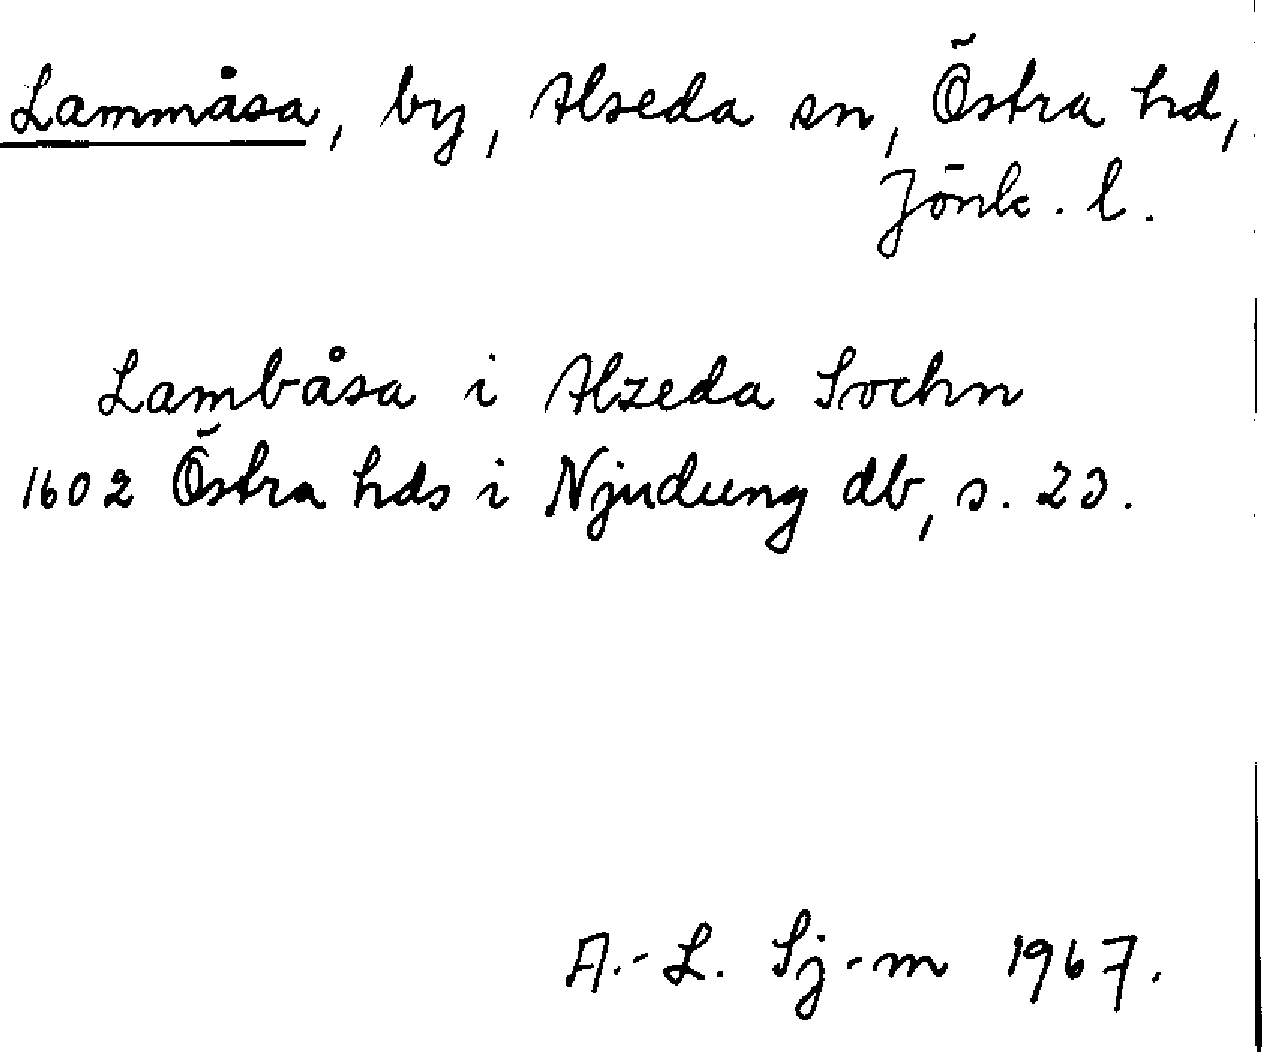 Lammåsa, by, Alseda sn, Östra hd,
Jönk. l.
Lambåsa i Alzeda Sochn
1602 Östra hds i Njudung db, s. 23.
A.-L. Sj-m 1967.